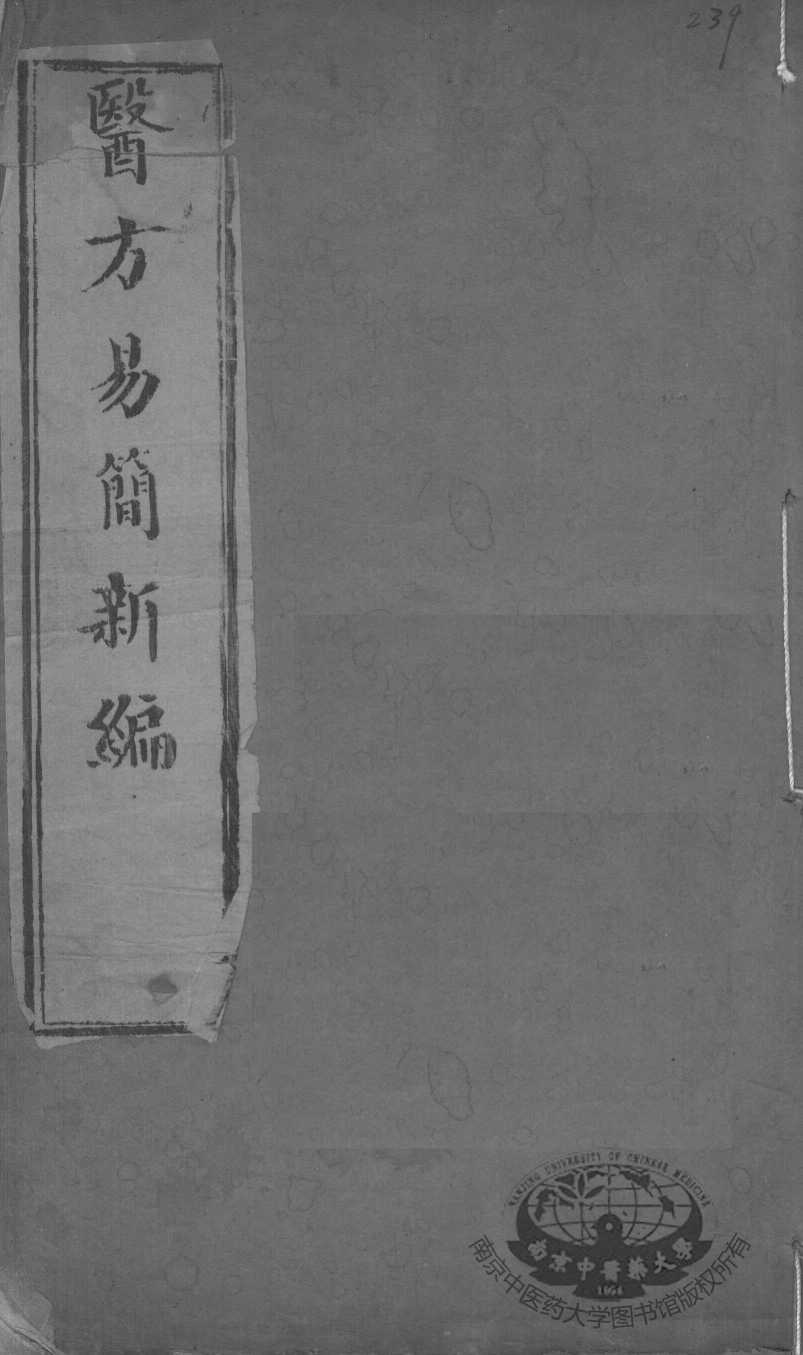 239
醫方易簡新編
NANJING UNIVERSITY OF CHINESE MEDICINE
南京中醫藥大學
1954
南京中医药大学图书馆版权所有